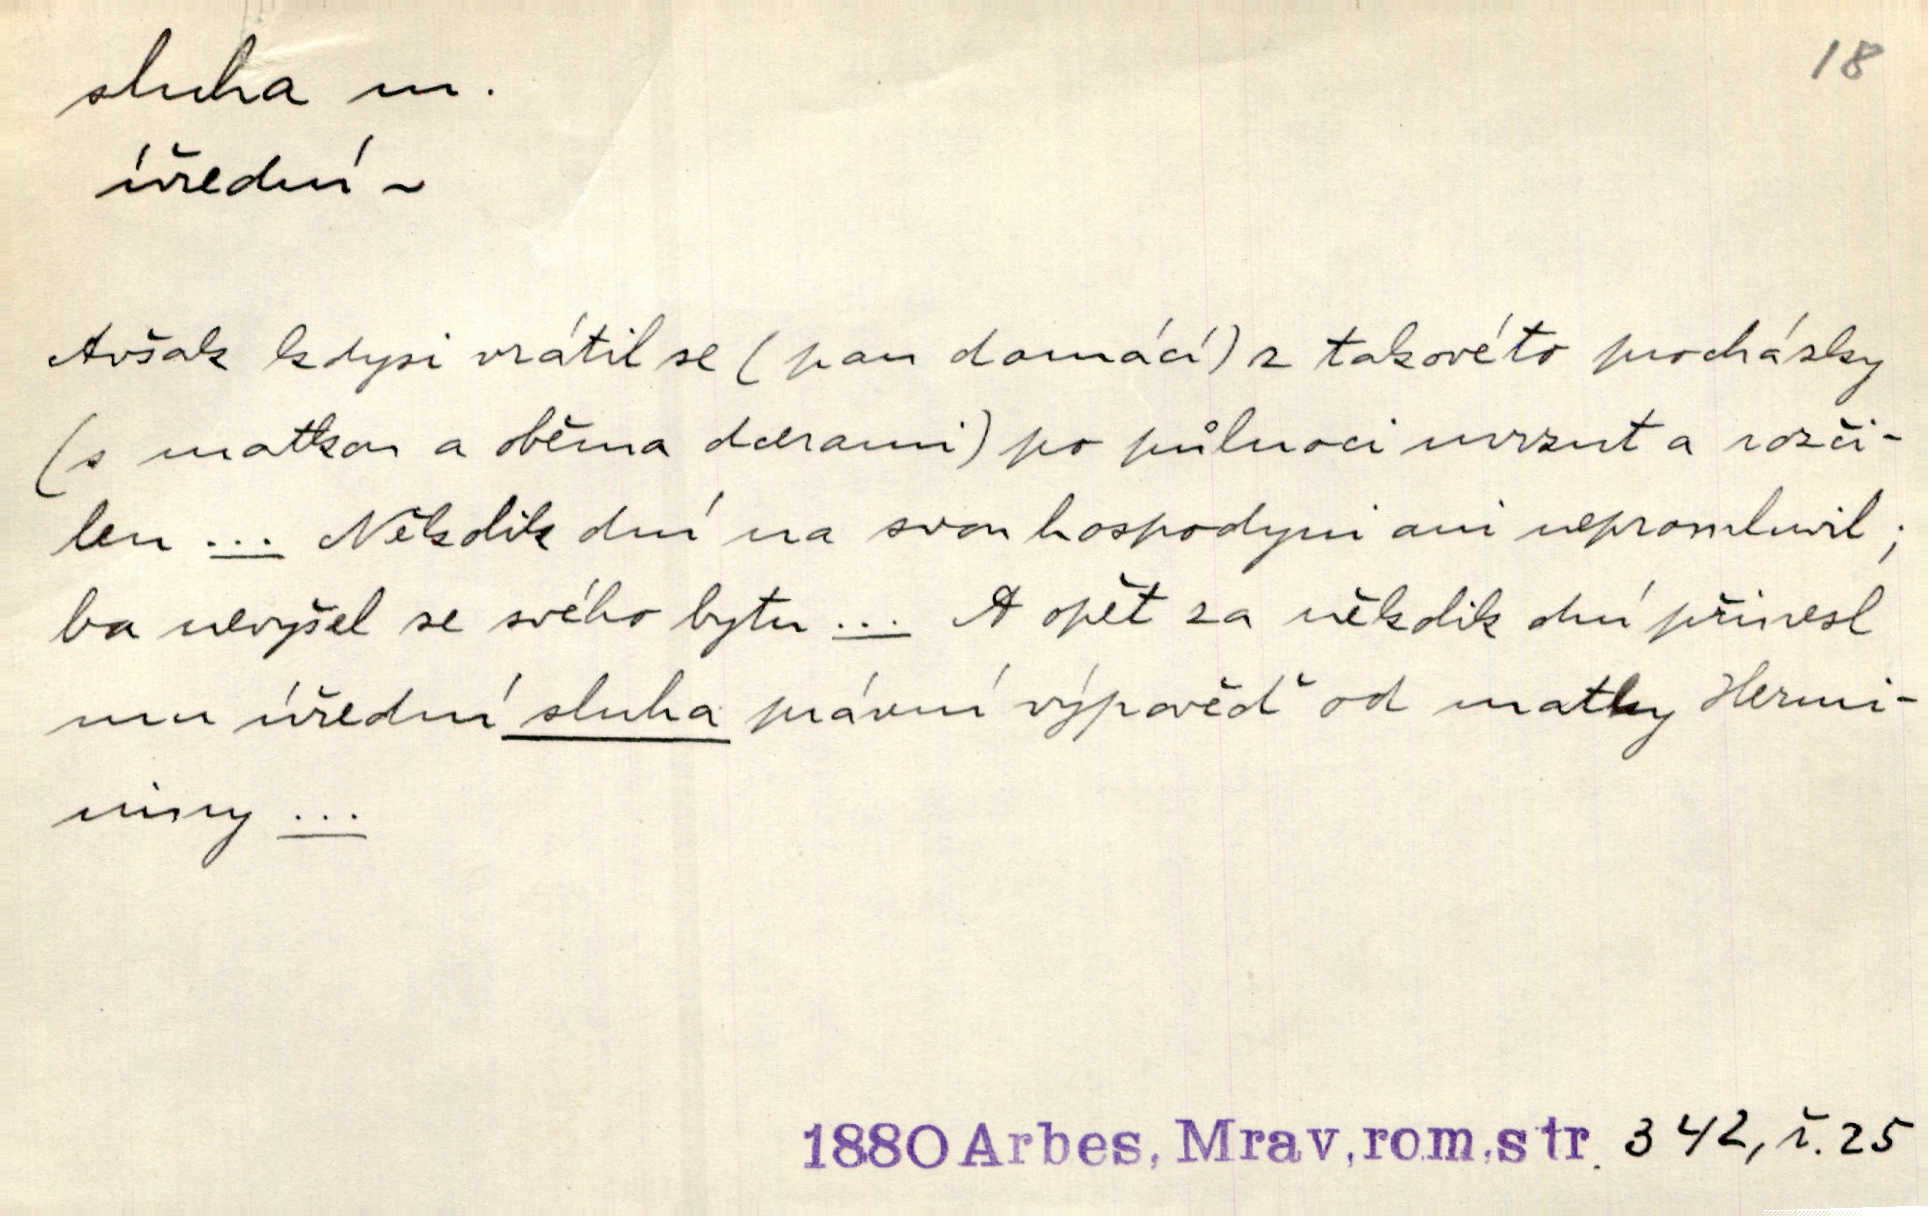 18
sluha m.
úřední ~
Avšak kdysi vrátil se (pan domácí) z takovéto procházky
(s matkou a oběma dcerami) po půlnoci mrzut a rozči-
len ... Několik dní na svou hospodyni ani nepromluvil;
ba nevyšel se svého bytu ... A opět za několik dní přinesl
mu úřední sluha právní výpověď od matky Hermi-
niny ...
1880 Arbes, Mrav, rom, str. 342, ř. 25